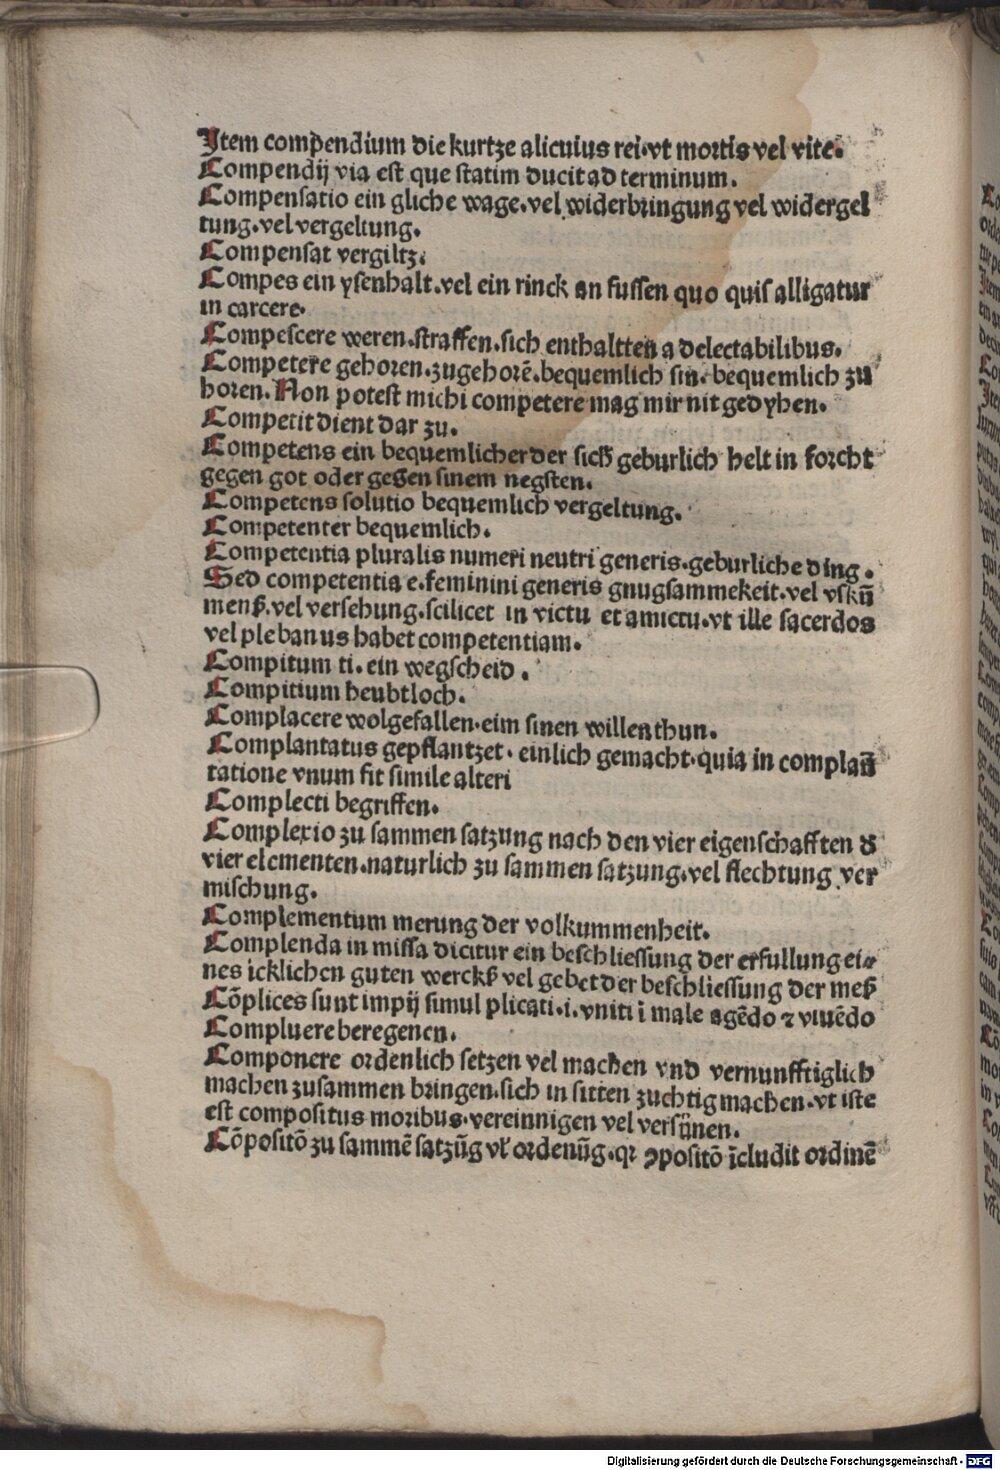 Item compendium die kurtze alicuius rei.vt mortis vel vite.
Compendij via est que statim ducit ad terminum.
Compensatio ein gliche wage.vel widerbringung vel widergel
tung.vel vergeltung.
Compensat vergiltz.
Compes ein ysenhalt.vel ein rinck an fussen quo quis alligatur
in carcere.
Compescere weren.straffen.sich enthaltten a delectabilibus.
Competere gehoren.zugehorē.bequemlich sin.bequemlich zu
horen.Non potest michi competere mag mir nit gedyhen.
Competit dient dar zu.
Competens ein bequemlicher der sich geburlich helt in forcht
gegen got oder gegen sinem negsten.
Competens solutio bequemlich vergeltung.
Competenter bequemlich.
Competentia pluralis numeri neutri generis.geburliche ding.
Sed competentia e.feminini generis gnugsammekeit.vel vskū
menß.vel versehung.scilicet in victu et amictu.vt ille sacerdos
vel plebanus habet competentiam.
Compitum ti.ein wegscheid.
Compitium heubtloch.
Complacere wolgefallen.eim sinen willen thun.
Complantatus gepflantzet.einlich gemacht.quia in complan̄
tatione vnum fit simile alteri
Complecti begriffen.
Complexio zu sammen satzung nach den vier eigenschafften d̕
vier elementen.naturlich zu sammen satzung.vel flechtung ver
mischung.
Complementum merung der volkummenheit.
Complenda in missa dicitur ein beschliessung der erfullung ei⸗
nes icklichen guten werckß vel gebet der beschliessung der meß
Cōplices sunt impij simul plicati.i.vniti ī male agēdo ⁊ viuēdo
Compluere beregenen.
Componere ordenlich setzen vel machen vnd vernunfftiglich
machen zusammen bringen.sich in sitten zuchtig machen.vt iste
est compositus moribus.vereinnigen vel versünen.
Cōpositō zu sammē satzūg vł ordenūg.qꝛ ꝯpositō īcludit ordinē
Digitalisierung gefördert durch die Deutsche Forschungsgemeinschaft - DFG